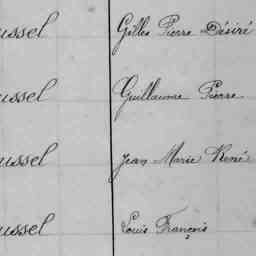 ussel Gilles Pierre Désiré
ussel Guillaume Pierre
ussel Jean Marie René
ussel Louis François